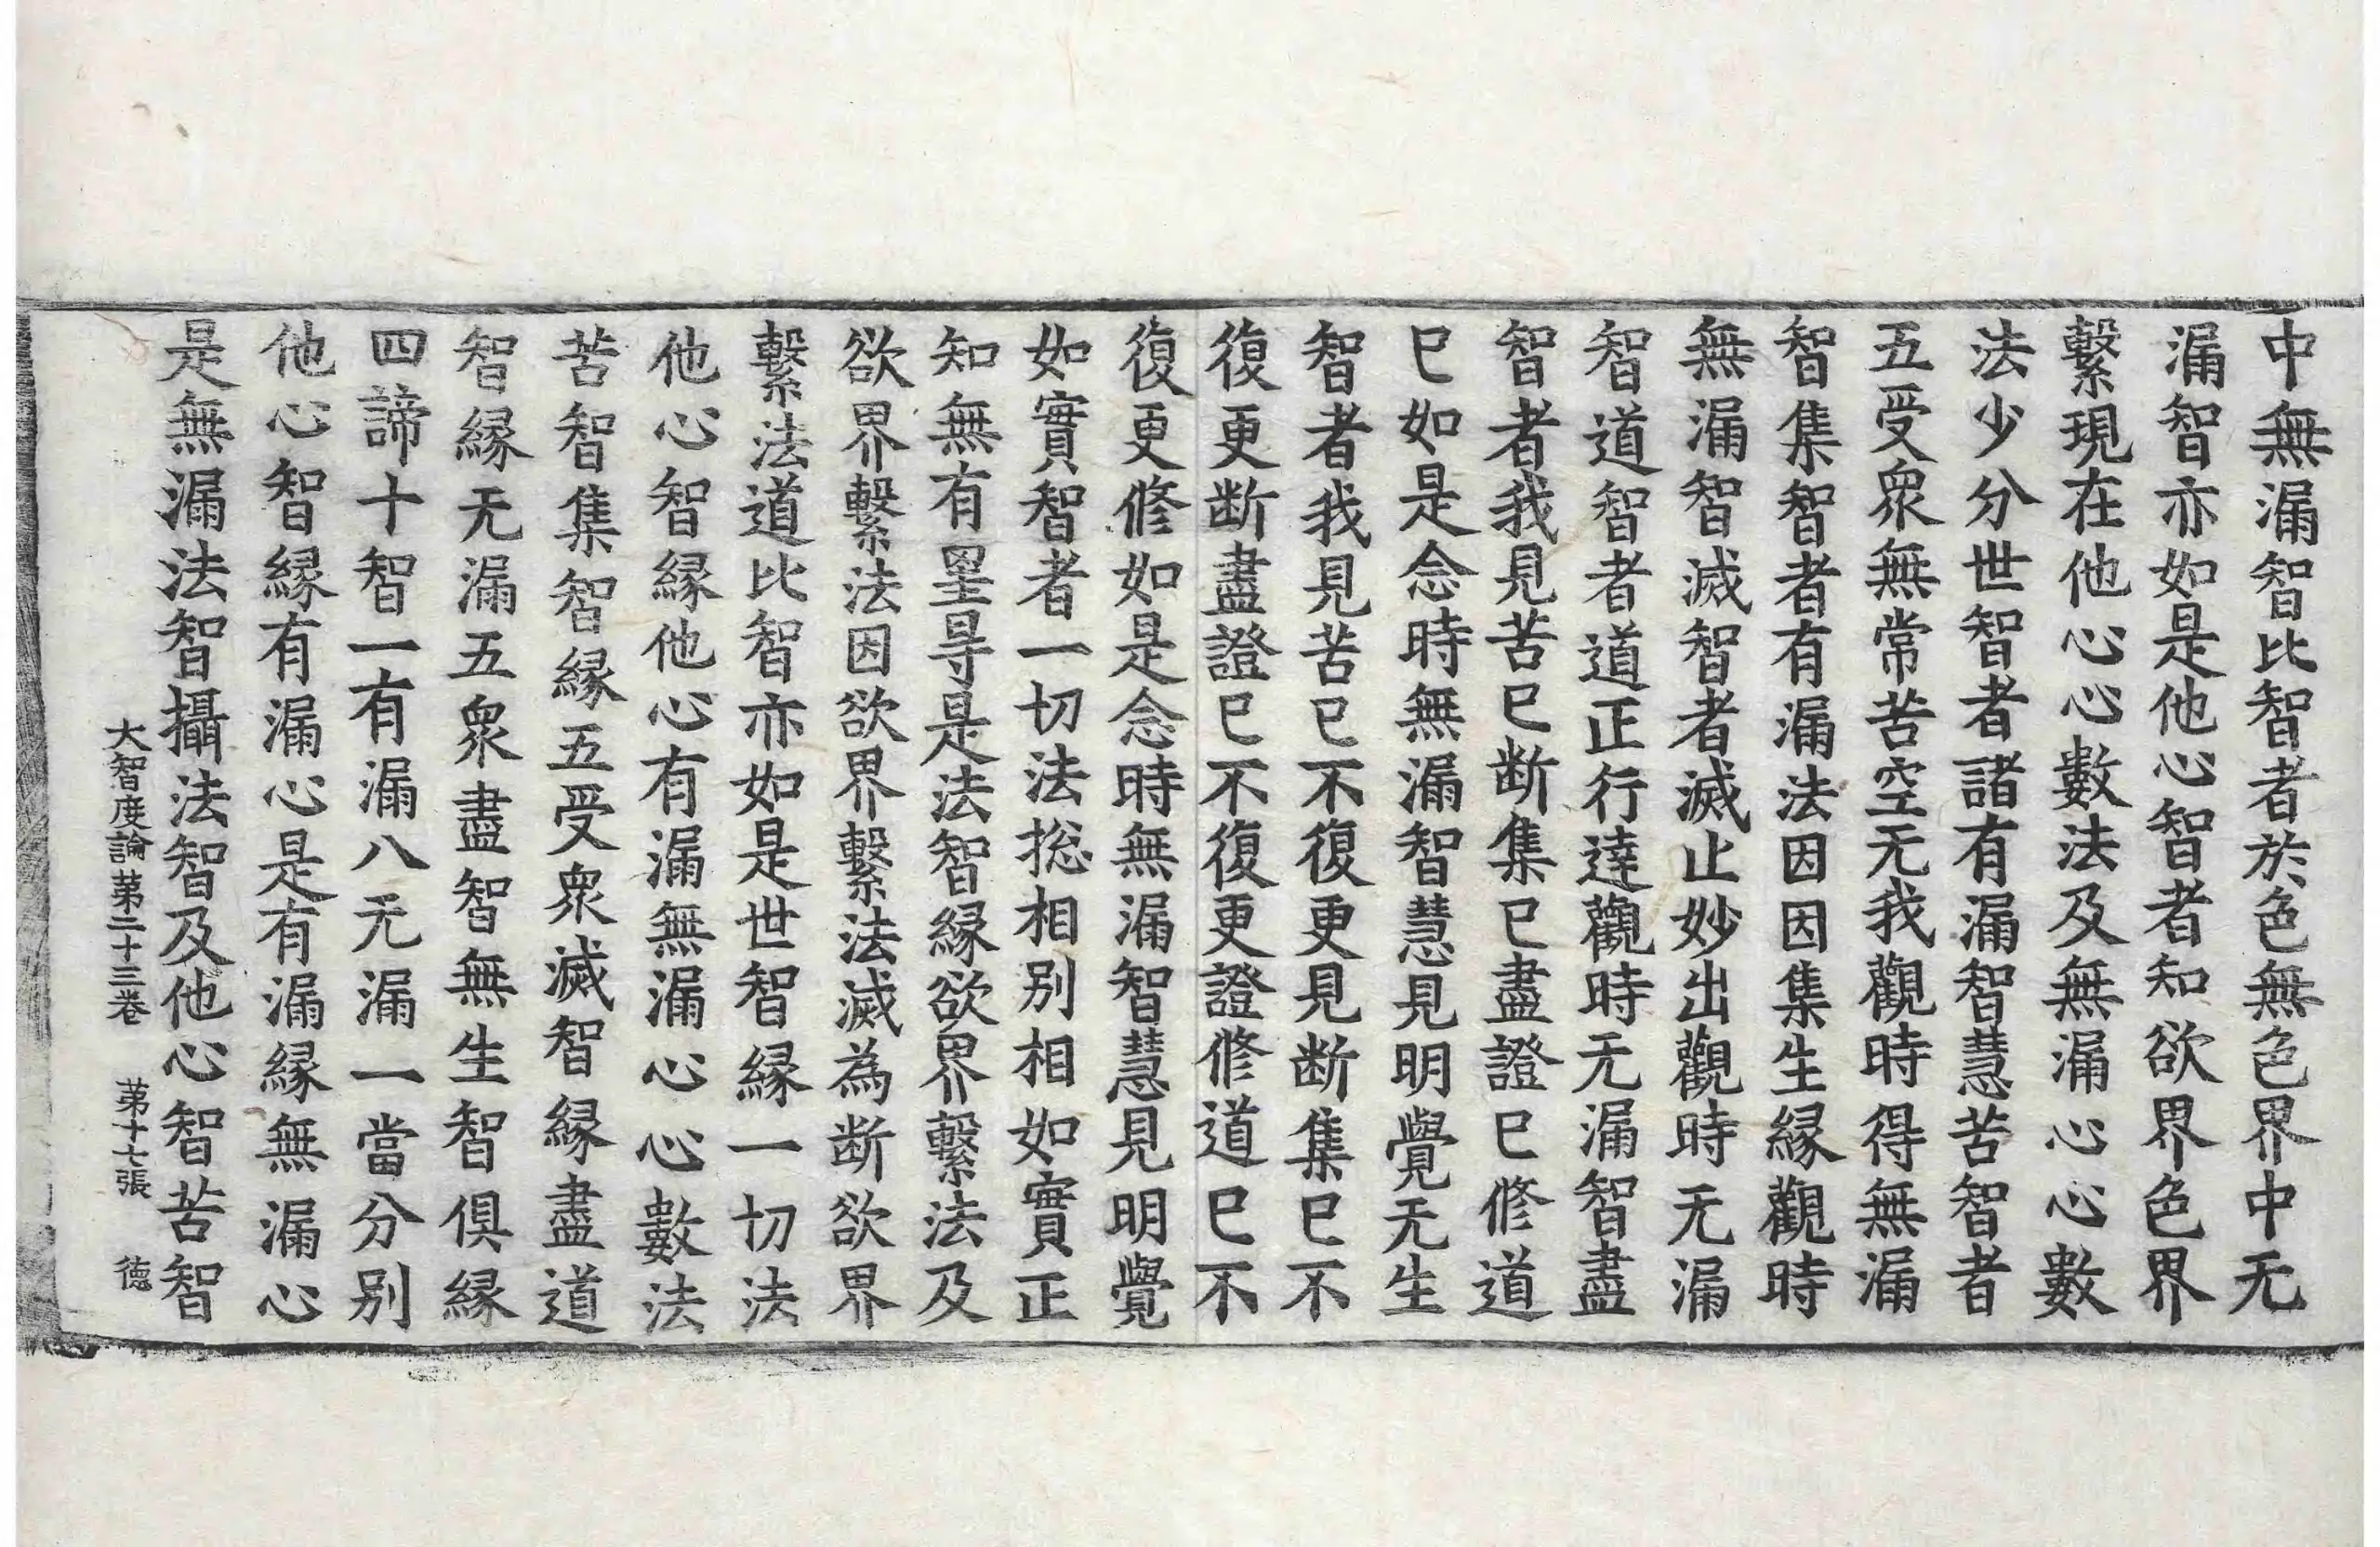 中無漏智比智者於色無色界中无
漏智亦如是他心智者知欲界色界
繫現在他心心數法及無漏心心數
法少分世智者諸有漏智慧苦智者
五受衆無常苦空无我觀時得無漏
智集智者有漏法因因集生縁觀時
無漏智滅智者滅止妙出觀時无漏
智道智者道正行達觀時无漏智盡
智者我見苦已断集已盡證已修道
已如是念時無漏智慧見明覺无生
智者我見苦已不復更見断集已不
復更断盡證已不復更證修道已不
復更修如是念時無漏智慧見明覺
如實智者一切法揔相别相如實正
知無有罣㝵是法智縁欲界繫法及
欲界繫法因欲界繫法滅為断欲界
繫法道比智亦如是世智縁一切法
他心智縁他心有漏無漏心心數法
苦智集智縁五受衆滅智縁盡道
智縁无漏五衆盡智無生智俱縁
四諦十智一有漏八无漏一當分别
他心智縁有漏心是有漏縁無漏心
是無漏法智攝法智及他心智苦智
大智度論苐二十三卷 苐十七張 德